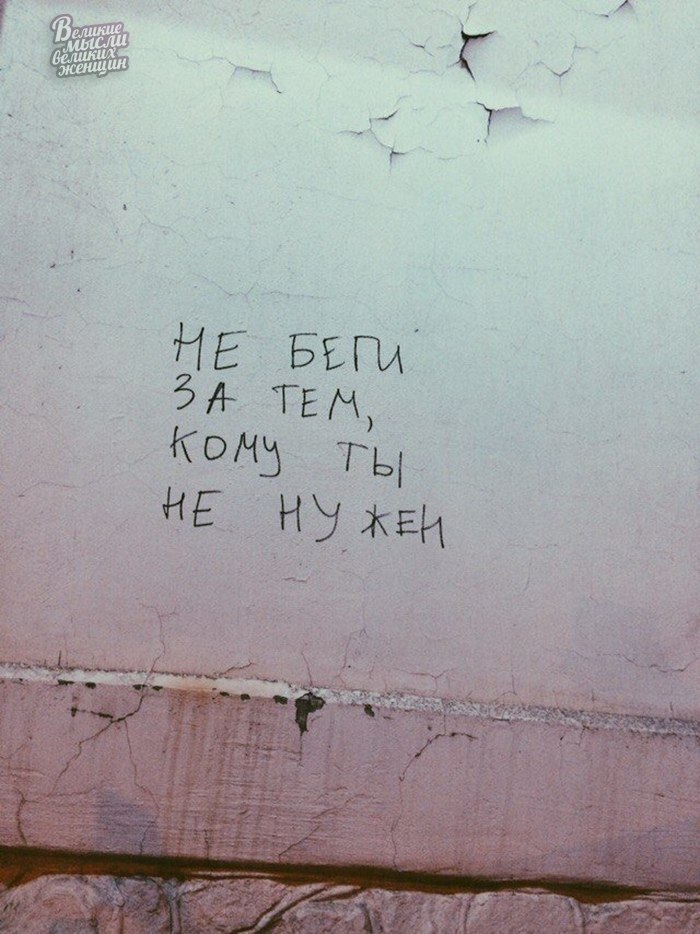 Великие
мысли
великих
женщин
НЕ БЕГИ
ЗА ТЕМ,
КОМУ ТЫ
НЕ НУЖЕН